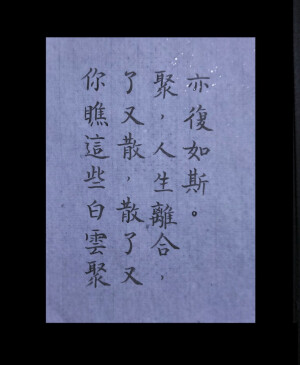 你瞧這些白雲聚
了又散，散了又
聚，人生離合，
亦復如斯。